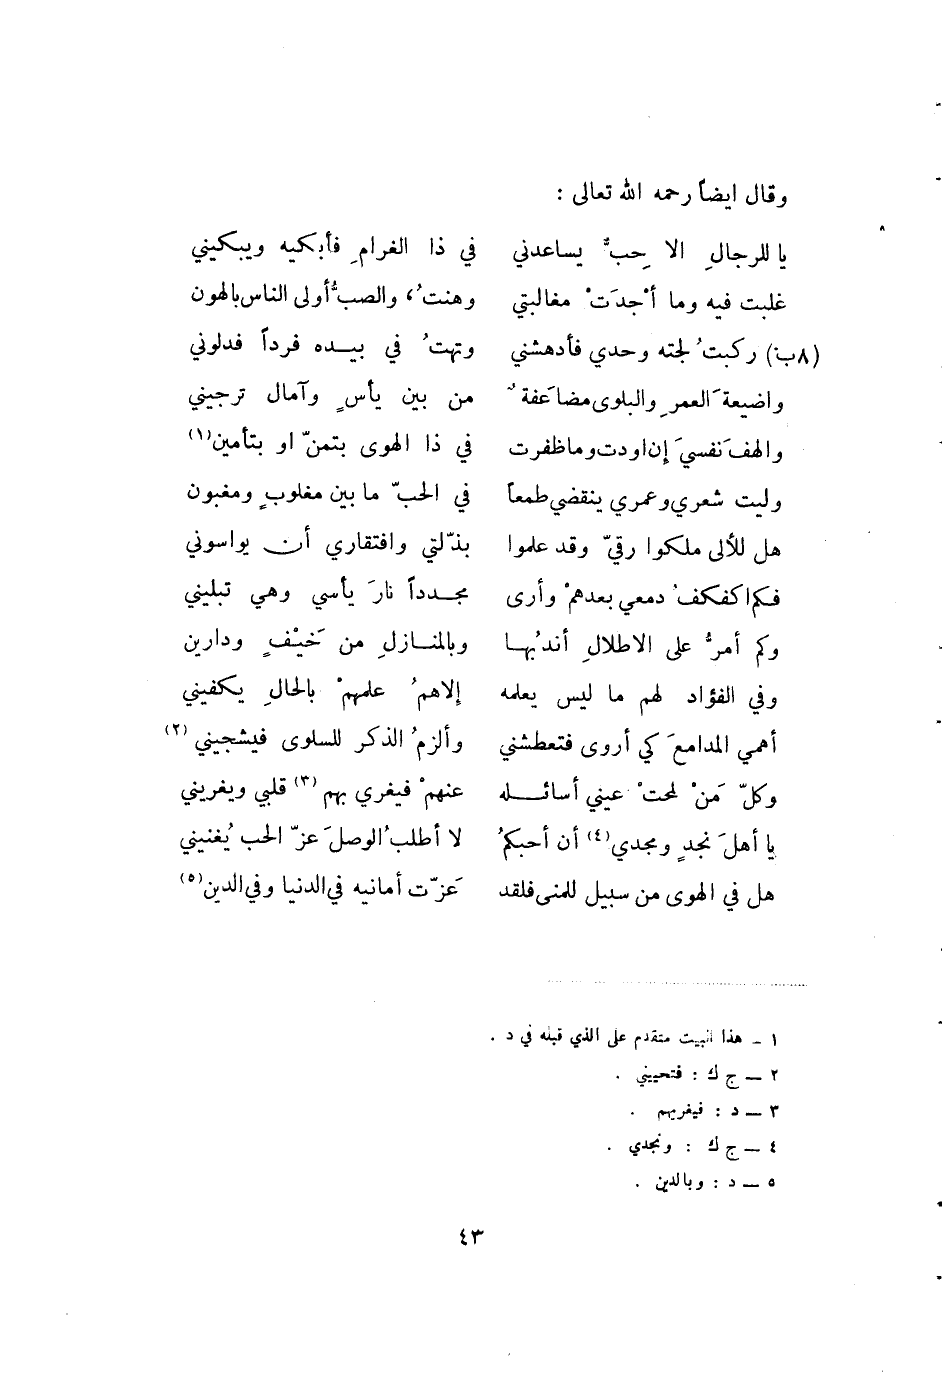 وقال ايضاً رحمه الله تعالى :
يا للرجالِ الا حِبٌّ يساعدني في ذا الغرامِ فأبكيه ويبكيني
غلبت فيه وما أجْدَتْ مغالبتي وهنتُ، والصبُّ أولى الناس بالهون
(٨ب) ركبتُ لجته وحدي فأدهشني وتهتُ في بيده فرداً فدلوني
واضيعةَ العمرِ والبلوى مضاعَفة ٌ من بين يأسٍ وآمال ترجيني
والهفَ نفسيَ إن اودت وما ظفرت في ذا الهوى بتمنّ او بتأمين(١)
وليت شعري وعمري ينقضي طمعاً في الحبّ ما بين مغلوبٍ ومغبون
هل للألى ملكوا رقيّ وقد علموا بذلّتي وافتقاري أن يواسوني
فكم اكفكفُ دمعي بعدهمْ وأرى مجدداً نارَ يأسي وهي تبليني
وكم أمرُّ على الاطلالِ أندبُها وبالمنازلِ من خَيْفٍ ودارين
وفي الفؤاد لهم ما ليس يعلمه إلاهمُ علمهمْ بالحالِ يكفيني
أهمي المدامعَ كي أروى فتعطشني وألزمُ الذكر للسلوى فيشجيني(٢)
وكلّ مَنْ لمحتْ عيني أسائله عنهمْ فيغري بهم(٣) قلبي ويغريني
يا أهلَ نجدٍ ومجدي(٤) أن أحبكمُ لا أطلبُ الوصلَ عزّ الحب يُغنيني
هل في الهوى من سبيل للمنى فلقد عَزّت أمانيه في الدنيا وفي الدين(٥)
١ ـ هذا البيت متقدم على الذي قبله في د .
٢ ـ ج ك : فتحييني .
٣ ـ د : فيغريهم .
٤ ـ ج ك : ونجدي .
٥ ـ د : وبالدين .
٤٣